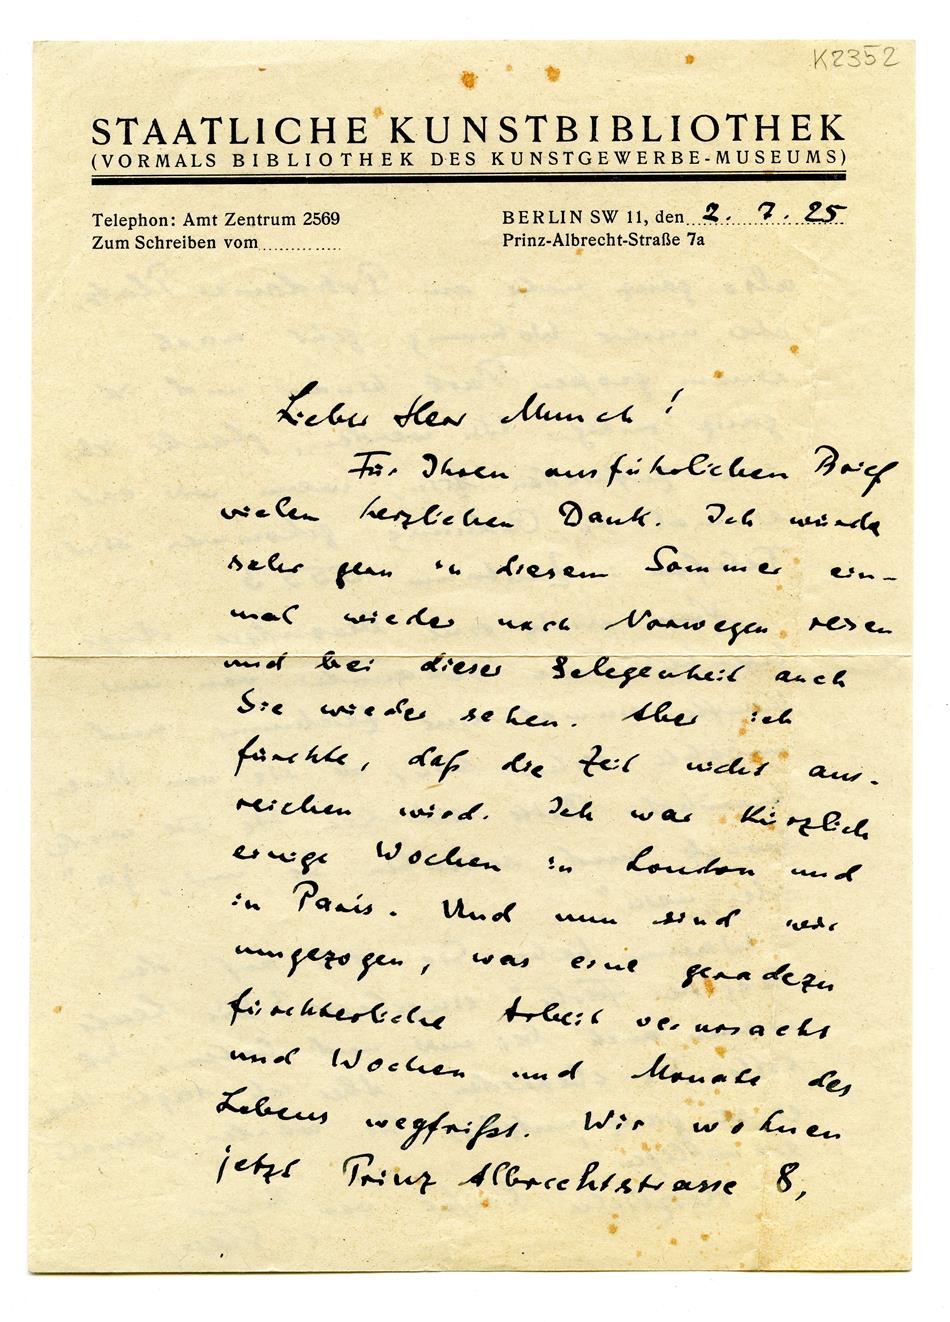 K2352
STAATLICHE KUNSTBIBLIOTHEK
(VORMALS BIBLIOTHEK DES KUNSTGEWERBE-MUSEUMS)
Telephon: Amt Zentrum 2569
Zum Schreiben vom
BERLIN SW 11, den 2. 7. 25
Prinz-Albrecht-Straße 7a
Lieber Herr Munch!
Für Ihren ausführlichen Brief
vielen herzlichen Dank. Ich würde
sehr gern in diesem Sommer ein-
mal wieder nach Norwegen reisen
und bei dieser Gelegenheit auch
Sie wieder sehen. Aber ich
fürchte, daß die Zeit nicht aus-
reichen wird. Ich war kürzlich
einige Wochen in London und
in Paris. Und nun sind wir
umgezogen, was eine geradezu
fürchterliche Arbeit verursacht
und Wochen und Monate des
Lebens wegfrißt. Wir wohnen
jetzt Prinz Albrechtstrasse 8,